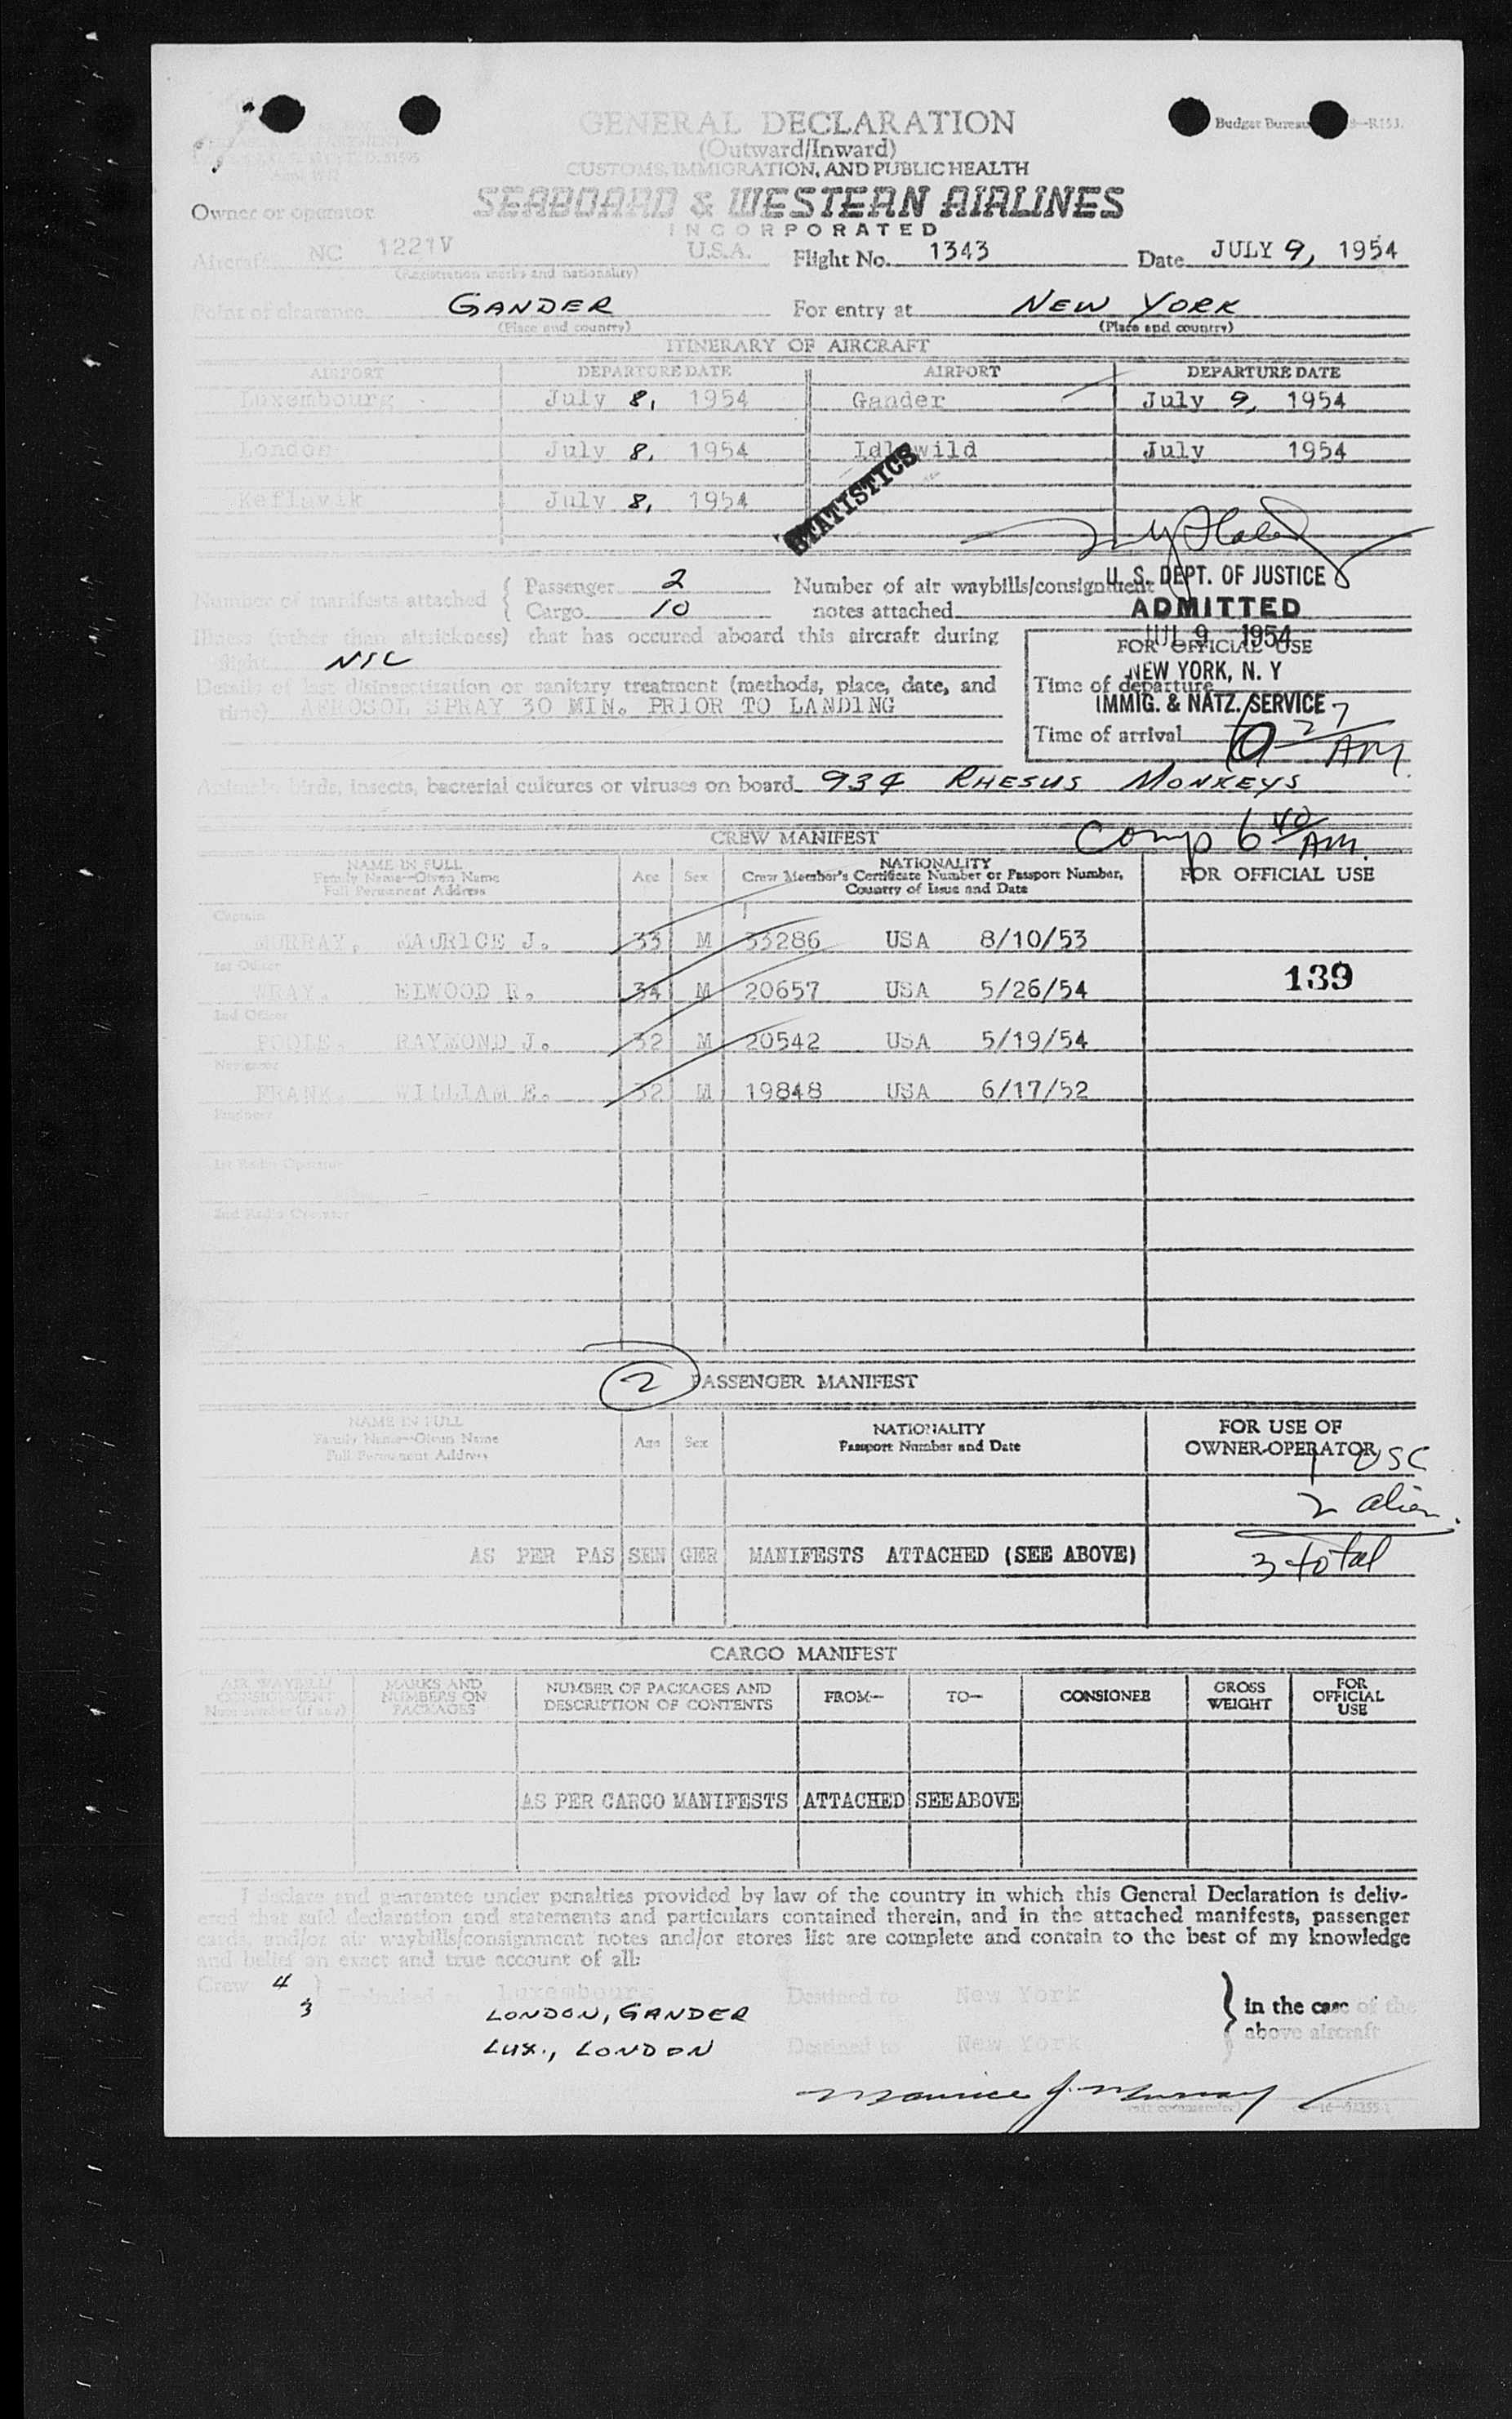 GENERAL DECLARATION
(Outward/Inward)
Budget Bureau
CUSTOMS, IMMIGRATION, AND PUBLIC HEALTH
Owner or operator SEABOARD & WESTERN AIRLINES
INCORPORATED
Aircraft NC 1221V U.S.A. Flight No. 1343 Date JULY 9, 1954
(Registration marks and nationality)
Point of clearance GANDER For entry at NEW YORK
(Place and country) (Place and country)
ITINERARY OF AIRCRAFT
AIRPORT DEPARTURE DATE AIRPORT DEPARTURE DATE
Luxembourg July 8, 1954 Gander July 9, 1954
London July 8, 1954 Idlewild July 1954
Keflavik July 8, 1954
STATISTICS
Number of manifests attached { Passenger 2 Number of air waybills/consignment
Cargo 10 notes attached
U. S. DEPT. OF JUSTICE
ADMITTED
JUL 9 1954
NEW YORK, N. Y
IMMIG. & NATZ. SERVICE
Illness (other than airsickness) that has occured aboard this aircraft during
flight NIL
FOR OFFICIAL USE
Details of last disinsectization or sanitary treatment (methods, place, date, and
time) AEROSOL SPRAY 30 MIN. PRIOR TO LANDING
Time of departure
Time of arrival 27 AM
Animals, birds, insects, bacterial cultures or viruses on board 934 RHESUS MONKEYS
CREW MANIFEST Comp 6 40 AM.
NAME IN FULL
Family Name—Given Name
Full Permanent Address
Age Sex
NATIONALITY
Crew Member's Certificate Number or Passport Number,
Country of Issue and Date
FOR OFFICIAL USE
Captain
MURRAY, MAURICE J. 33 M 33286 USA 8/10/53
1st Officer
WRAY, ELWOOD R. 34 M 20657 USA 5/26/54 139
2nd Officer
POOLE, RAYMOND J. 32 M 20542 USA 5/19/54
Navigator
FRANK, WILLIAM E. 32 M 19848 USA 6/17/52
Engineer
1st Radio Operator
2nd Radio Operator
2 PASSENGER MANIFEST
NAME IN FULL
Family Name—Given Name
Full Permanent Address
Age Sex
NATIONALITY
Passport Number and Date
FOR USE OF
OWNER-OPERATOR
1 USC
2 alien
AS PER PASSENGER MANIFESTS ATTACHED (SEE ABOVE) 3 total
CARGO MANIFEST
AIR WAYBILL/
CONSIGNMENT
Note number (if any)
MARKS AND
NUMBERS ON
PACKAGES
NUMBER OF PACKAGES AND
DESCRIPTION OF CONTENTS
FROM— TO— CONSIGNEE
GROSS
WEIGHT
FOR
OFFICIAL
USE
AS PER CARGO MANIFESTS ATTACHED SEE ABOVE
I declare and guarantee under penalties provided by law of the country in which this General Declaration is deliv-
ered that said declaration and statements and particulars contained therein, and in the attached manifests, passenger
cards, and/or air waybills/consignment notes and/or stores list are complete and contain to the best of my knowledge
and belief an exact and true account of all:
Crew 4 } Embarked at Luxembourg Destined to New York } in the case of the
3 LONDON, GANDER above aircraft
LUX., LONDON Destined to New York
Maurice J. Murray